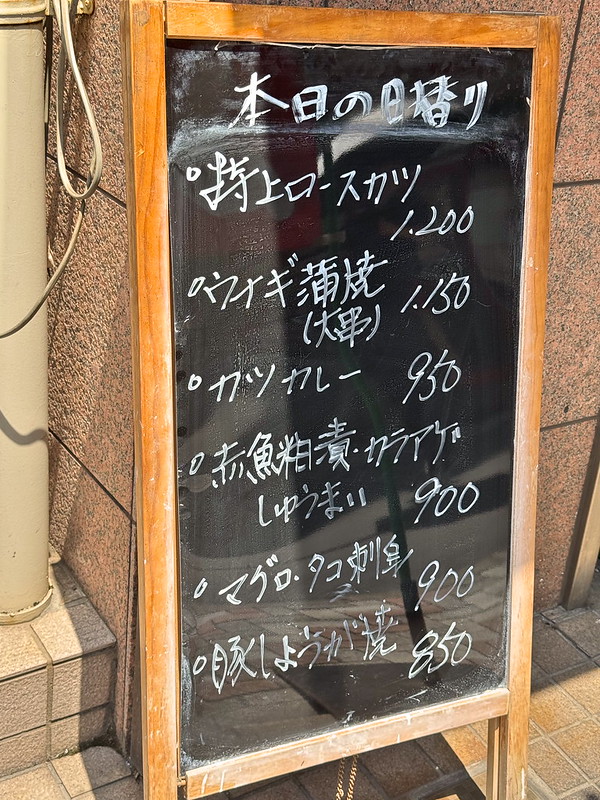 本日の日替り
○特上ロースカツ
1.200
○ウナギ蒲焼 1.150
(大串)
○カツカレー 950
○赤魚粕漬・カラアゲ
しゅうまい 900
○マグロ・タコ刺身 900
○豚しょうが焼 850